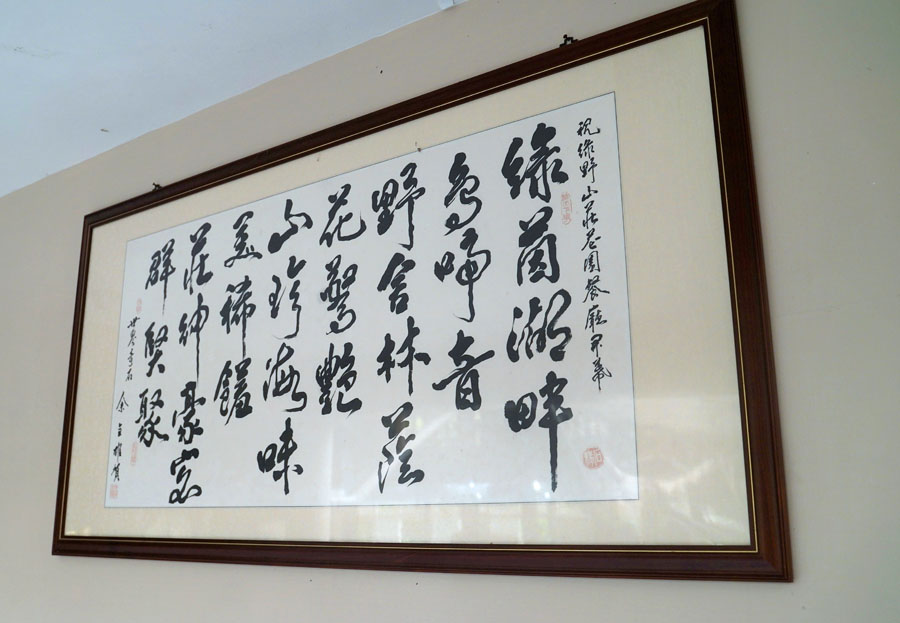 祝綠野山莊花園餐廳開幕
綠茵湖畔
鳥啼音
野舍林蔭
花驚艷
山珍海味
美稀饈
莊紳豪客
群賢聚
余